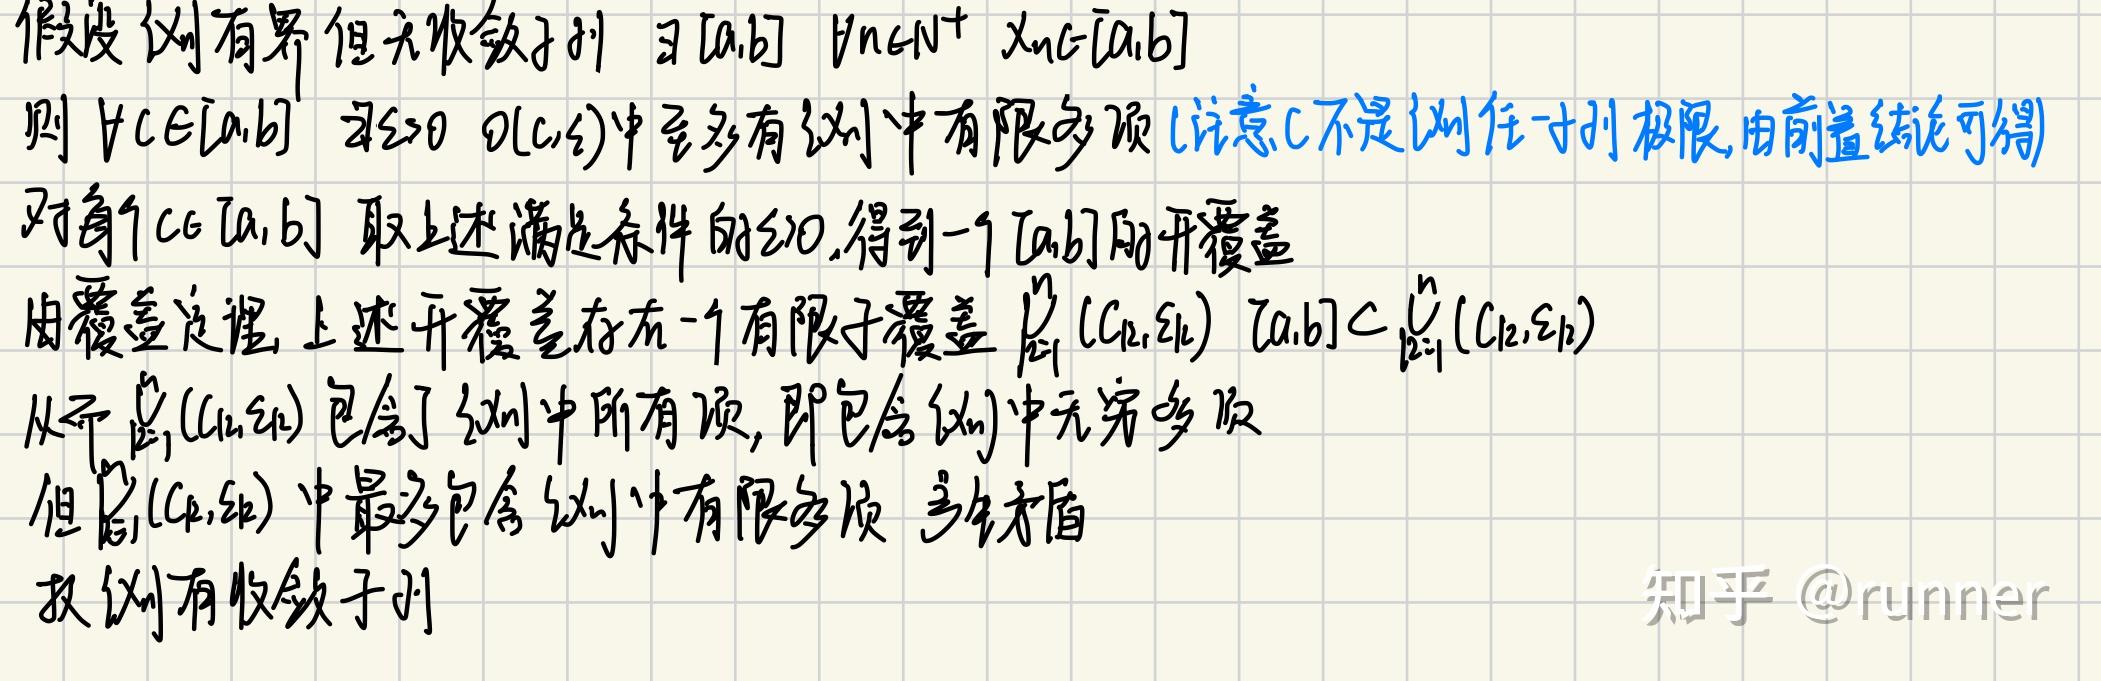 假设{xn}有界但无收敛子列 ∃[a,b] ∀n∈N⁺ xn∈[a,b]
则 ∀c∈[a,b] ∃ε>0 O(c,ε)中至多有{xn}中有限多项(注意c不是{xn}任一子列极限,由前置结论可得)
对每个c∈[a,b] 取上述满足条件的ε>0,得到一个[a,b]的开覆盖
由覆盖定理,上述开覆盖存在一个有限子覆盖 ⋃ⁿₖ₌₁(Ck,εk) [a,b]⊂⋃ⁿₖ₌₁(Ck,εk)
从而 ⋃ⁿₖ₌₁(Ck,εk)包含了{xn}中所有项,即包含{xn}中无穷多项
但⋃ⁿₖ₌₁(Ck,εk)中最多包含{xn}中有限多项 产生矛盾
故{xn}有收敛子列
知乎 @runner